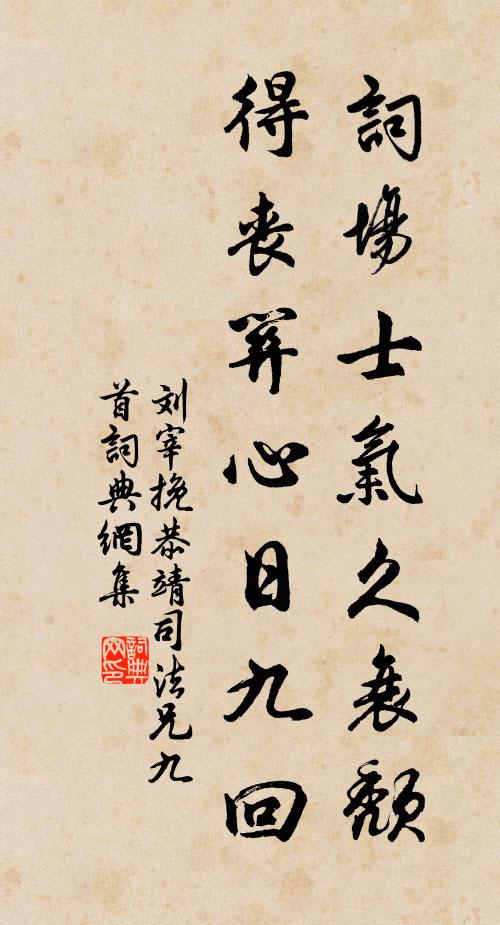 詞場士氣久衰頹
得喪關心日九回
刘宰挽恭靖司法兄九
首詞典網集
詞典网印